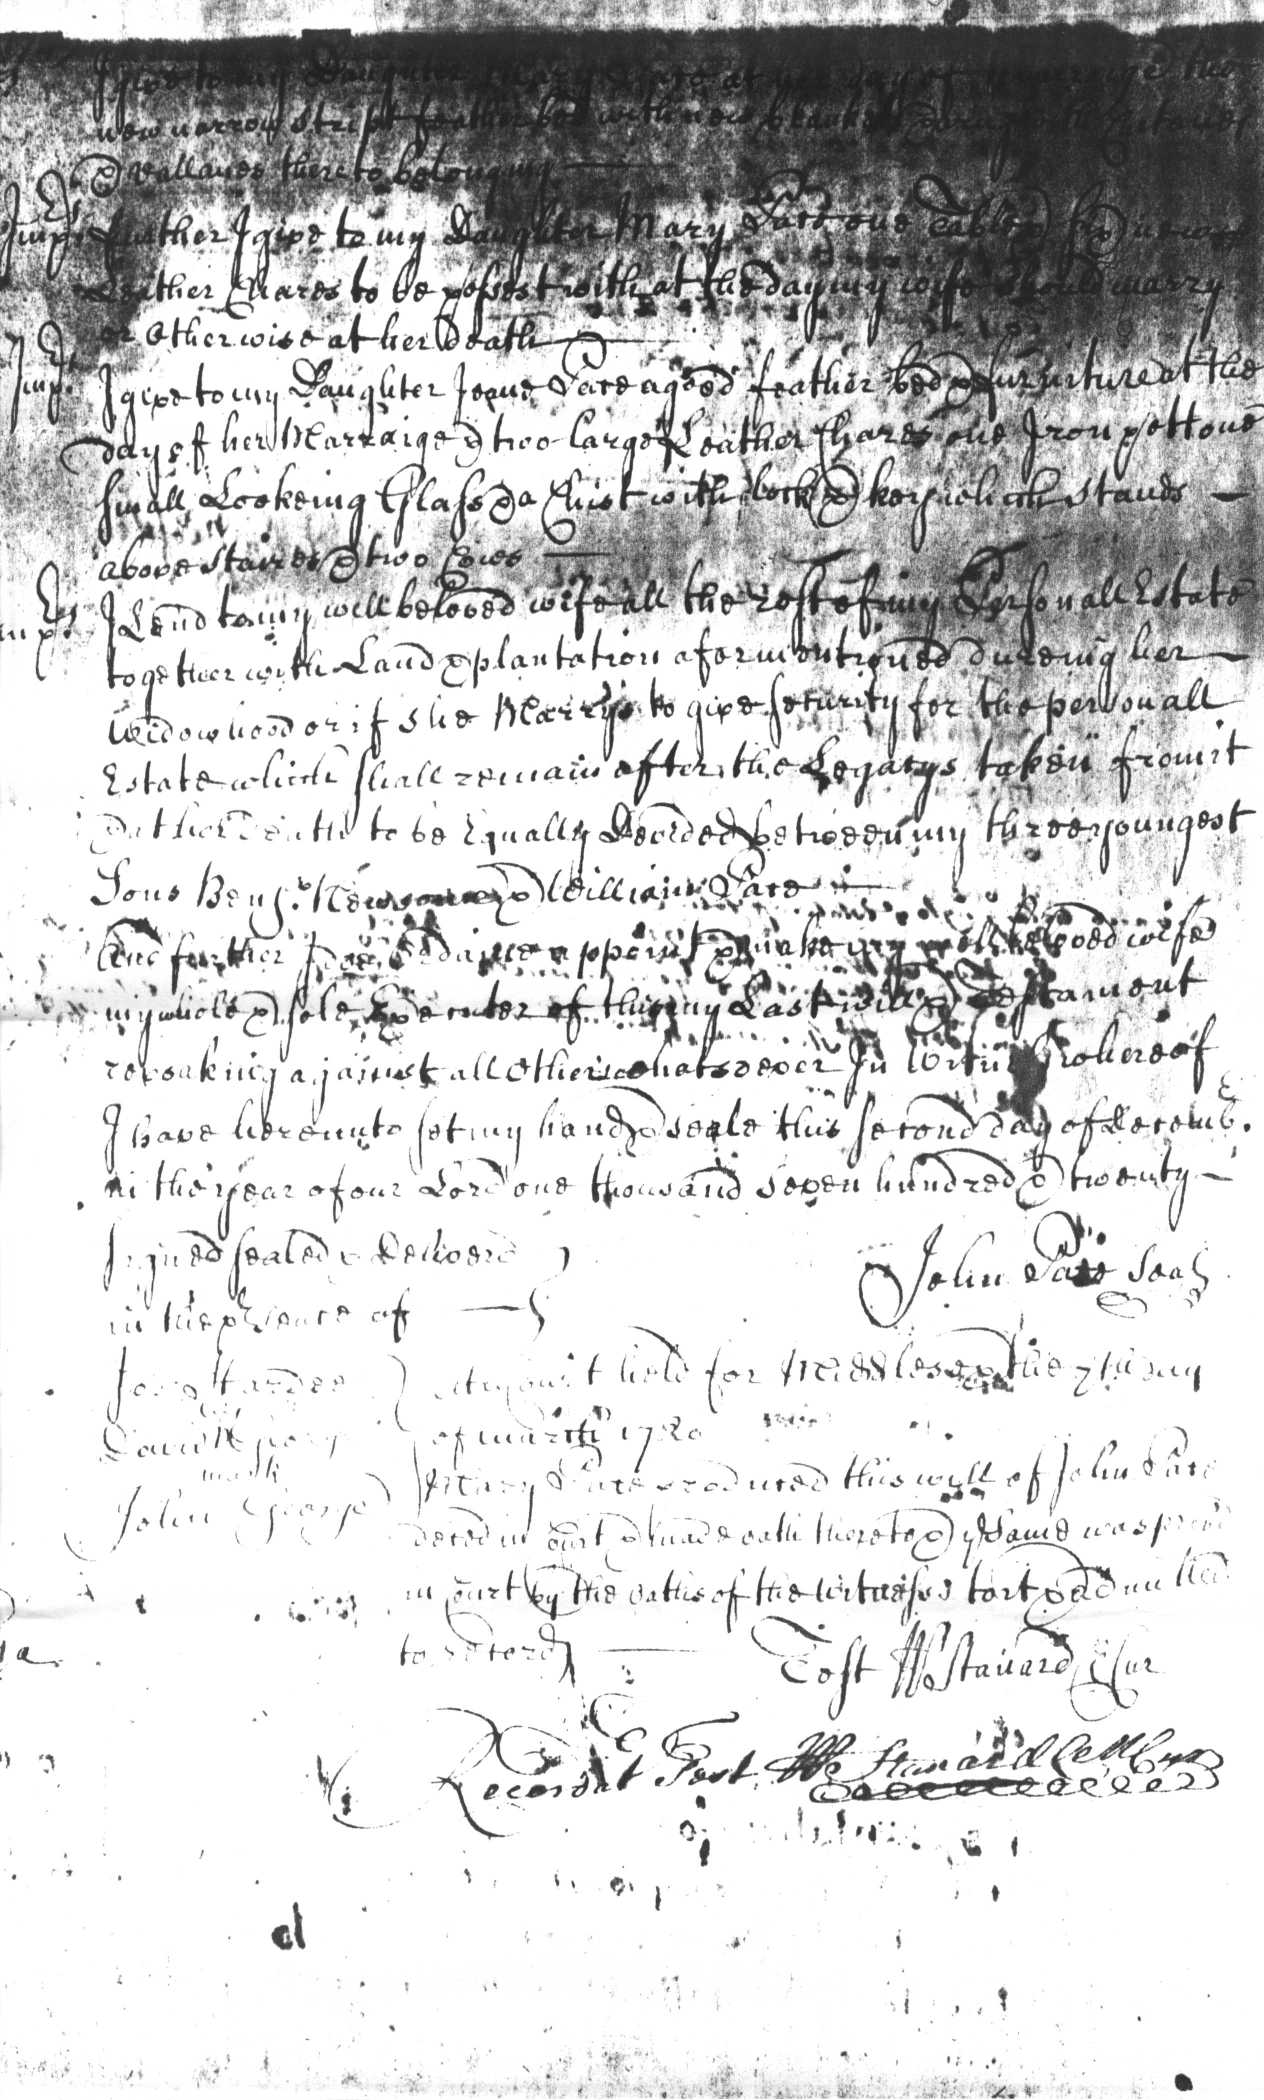 I give to my Daughter Mary Pace at the day of Marraige two
new narrow stript feather bed with new blanket
& vallanes thereto belonging
Imprs further I give to my Daughter Mary Pace one Table & six new
Leather Chares to be possest with at the day my wife should marry
or Otherwise at her death
Imprs I give to my Daughter Jeane Pace a good feather bed & furniture at the
day of her Marraige & two large Leather Chares one Iron pott one
small Lookeing Glass & a Chist with lock & key which stands
above Staires & two Cowes
Imprs I Lend to my well beloved wife all the rest of my Personall Estate
together with Land & plantation aformentioned dureing her
Widowhood or if she Marrys to give security for the personall
Estate which shall remain after the Legacys taken from it
& at her death to be Equally Devided between my three youngest
Sons Benj: Newsome & William Pace
And further I doe Ordaine appoint & make my well beloved wife
my whole & sole Executer of this my Last will & Testament
revoakeing against all Others whatsoever In Witnes whereof
I have hereunto set my hand & seale this second day of Decembr.
in the year of our Lord one thousand seven hundred & twenty
Signed sealed & Deliverd
in the presence of
John Pace Seal
Hardee
At a Court held for Middlesex the 7th day
David George
of March 1720
mark
Mary Pace produced this will of John Pace
John George
deced in Court & made oath thereto & ye same was proved
in Court by the oaths of the Witnesses to it & admitted
to record
Test Wo Stanard Cl Cur
Recordat Test Wo Stanard Cl Cur